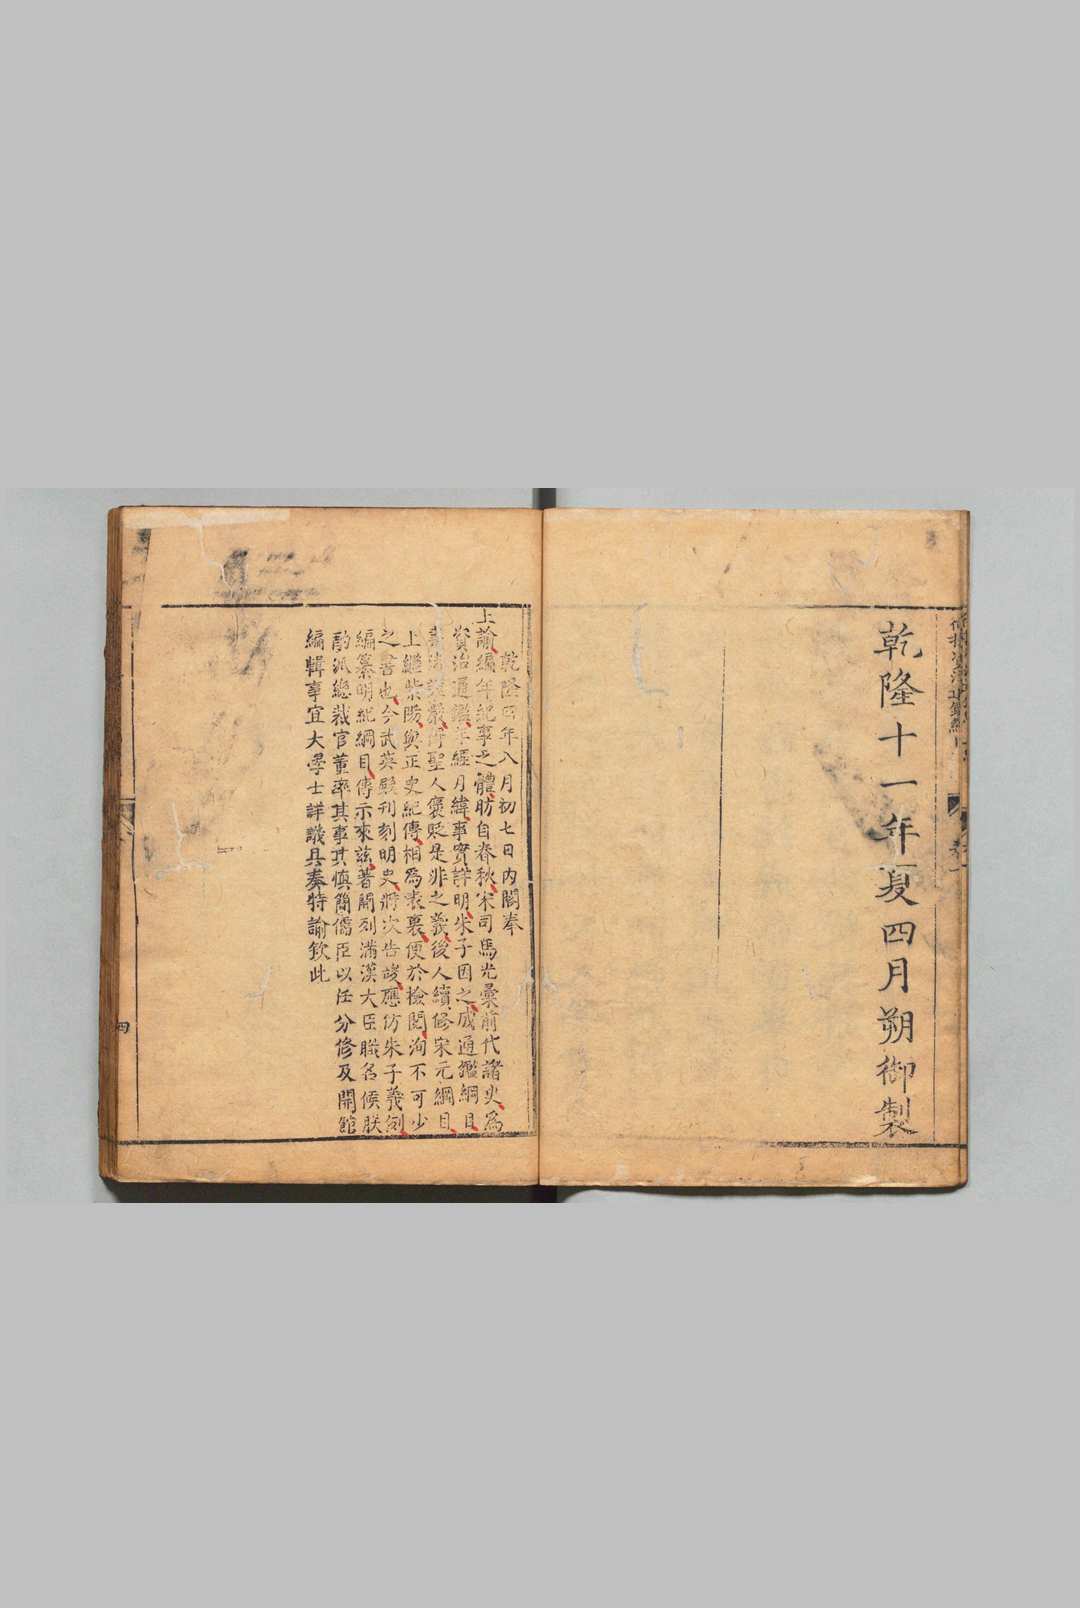 乾隆十一年夏四月朔御製
乾隆四年八月初七日内閣奉
上諭編年紀事之體昉自春秋宋司馬光彙前代諸史為
資治通鑑年經月緯事實詳明朱子因之成通鑑綱目
書法謹嚴得聖人褒貶是非之義後人續修宋元綱目
上繼紫陽與正史紀傳相為表裏便於檢閱洵不可少
之書也今武英殿刊刻明史將次告竣應仿朱子義例
編纂明紀綱目傳示來茲著開列滿漢大臣職名候朕
酌派總裁官董率其事其慎簡儒臣以任分修及開館
編輯事宜大學士詳議具奏特諭欽此
四